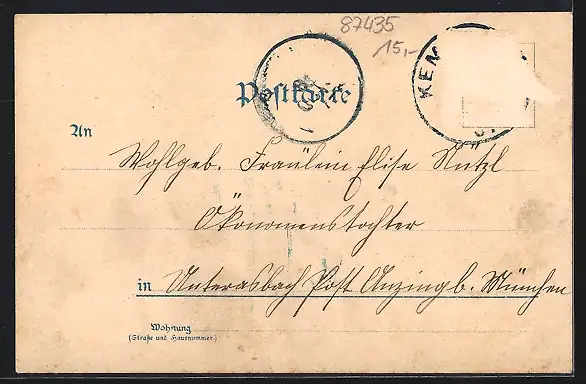 87435
15,-
Postkarte
KEM
An
Wohlgeb. Fräulein Elise Nützl
Ökonomenstochter
in Unterasbach Post Anzing b. München
Wohnung
(Straße und Hausnummer.)